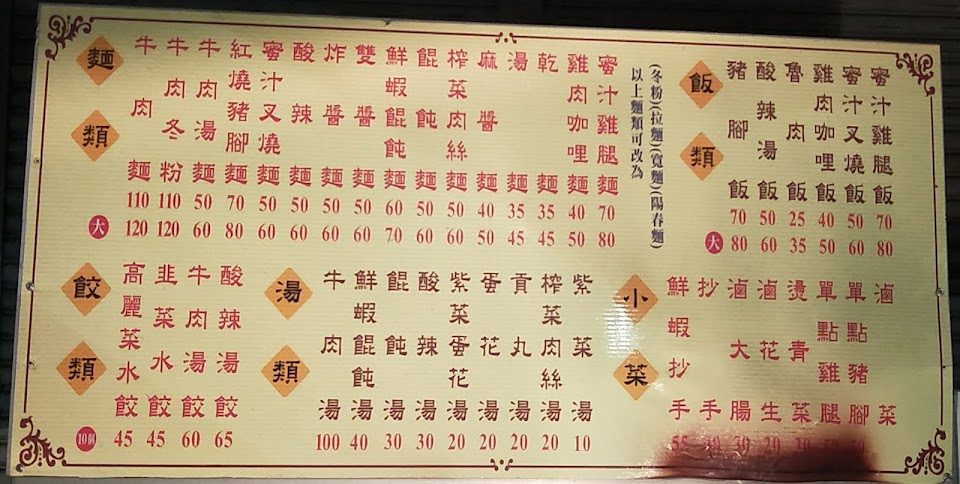 麵類
大
牛肉麵 110 120
牛肉冬粉 110 120
牛肉湯麵 50 60
紅燒豬腳麵 70 80
蜜汁叉燒麵 50 60
酸辣麵 50 60
炸醬麵 50 60
雙醬麵 50 60
鮮蝦餛飩麵 60 70
餛飩麵 50 60
榨菜肉絲麵 50 60
麻醬麵 40 50
湯麵 35 45
乾麵 35 45
雞肉咖哩麵 40 50
蜜汁雞腿麵 70 80
以上麵類可改為
(冬粉)(拉麵)(寬麵)(陽春麵)
飯類
大
豬腳飯 70 80
酸辣湯飯 50 60
魯肉飯 25 35
雞肉咖哩飯 40 50
蜜汁叉燒飯 50 60
蜜汁雞腿飯 70 80
餃類
10個
高麗菜水餃 45
韭菜水餃 45
牛肉湯餃 60
酸辣湯餃 65
湯類
牛肉湯 100
鮮蝦餛飩湯 40
餛飩湯 30
酸辣湯 30
紫菜蛋花湯 20
蛋花湯 20
貢丸湯 20
榨菜肉絲湯 20
紫菜湯 10
小菜
鮮蝦抄手 55
抄手
滷大腸 30
滷花生 20
燙青菜
單點雞腿
單點豬腳
滷菜